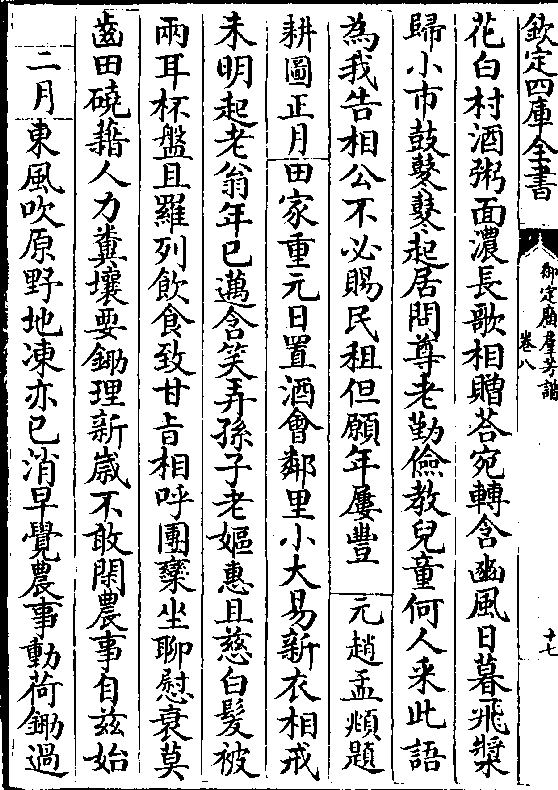 欽定四庫全書
御定廣羣芳譜
卷八
十七
花白村酒粥面濃長歌相贈荅宛轉含豳風日暮飛槳
歸小市鼓鼕鼕起居問尊老勤儉教兒童何人采此語
為我告相公不必賜民租但願年屢豐 元趙孟頫題
耕圖正月田家重元日置酒會鄰里小大易新衣相戒
未明起老翁年已邁含笑弄孫子老嫗惠且慈白髮被
兩耳杯盤且羅列飲食致甘㫖相呼團欒坐聊慰衰莫
齒田磽藉人力糞壤要鋤理新歲不敢閑農事自兹始
二月東風吹原野地凍亦已消早覺農事動荷鋤過